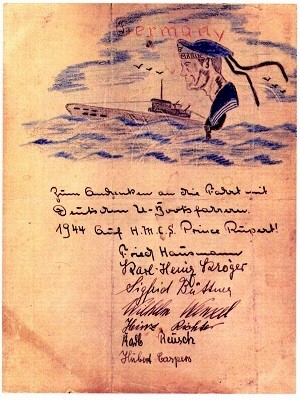 Germany
Zum Andenken an die Fahrt mit
Deutschen U-Bootsfahrern.
1944 Auf H.M.C.S. Prince Rupert!
Fried Hausmann
Karl-Heinz Kröger
Sigfried Büttner
Wilhelm
Heinz Richter
Karl Heusch
Hubert Caspers